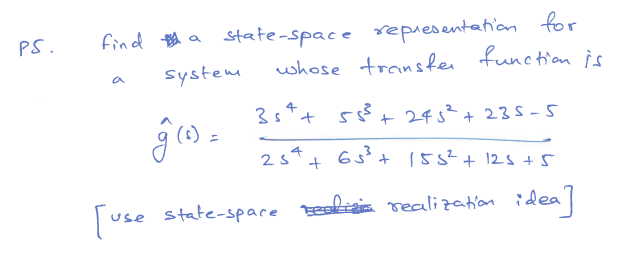 P5. find a state-space representation for
a system whose transfer function is
ĝ(s) = (3s⁴ + 5s³ + 24s² + 23s - 5) / (2s⁴ + 6s³ + 15s² + 12s + 5)
[use state-space realization idea]